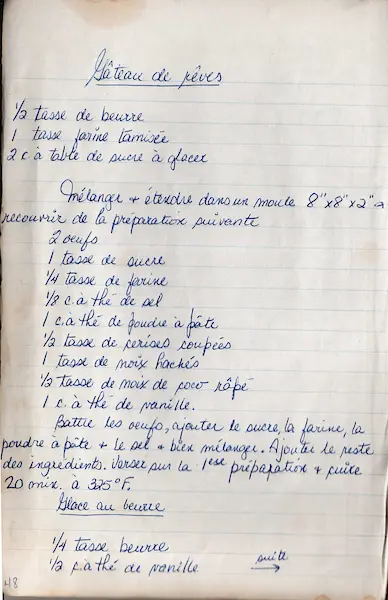 Gâteau de rêves
1/2 tasse de beurre
1 tasse farine tamisée
2 c. à table de sucre à glacer
Mélanger + étendre dans un moule 8"x8"x2" +
recouvrir de la préparation suivante
2 oeufs
1 tasse de sucre
1/4 tasse de farine
1/8 c. à thé de sel
1 c. à thé de poudre à pâte
1/2 tasse de cerises coupées
1 tasse de noix hachés
1/2 tasse de noix de coco râpé
1 c. à thé de vanille.
Battre les oeufs, ajouter le sucre, la farine, la
poudre à pâte + le sel + bien mélanger. Ajouter le reste
des ingrédients. Verser sur la 1ère préparation + cuire
20 min. à 325°F.
Glace au beurre
1/4 tasse beurre
1/2 c. à thé de vanille
suite
48